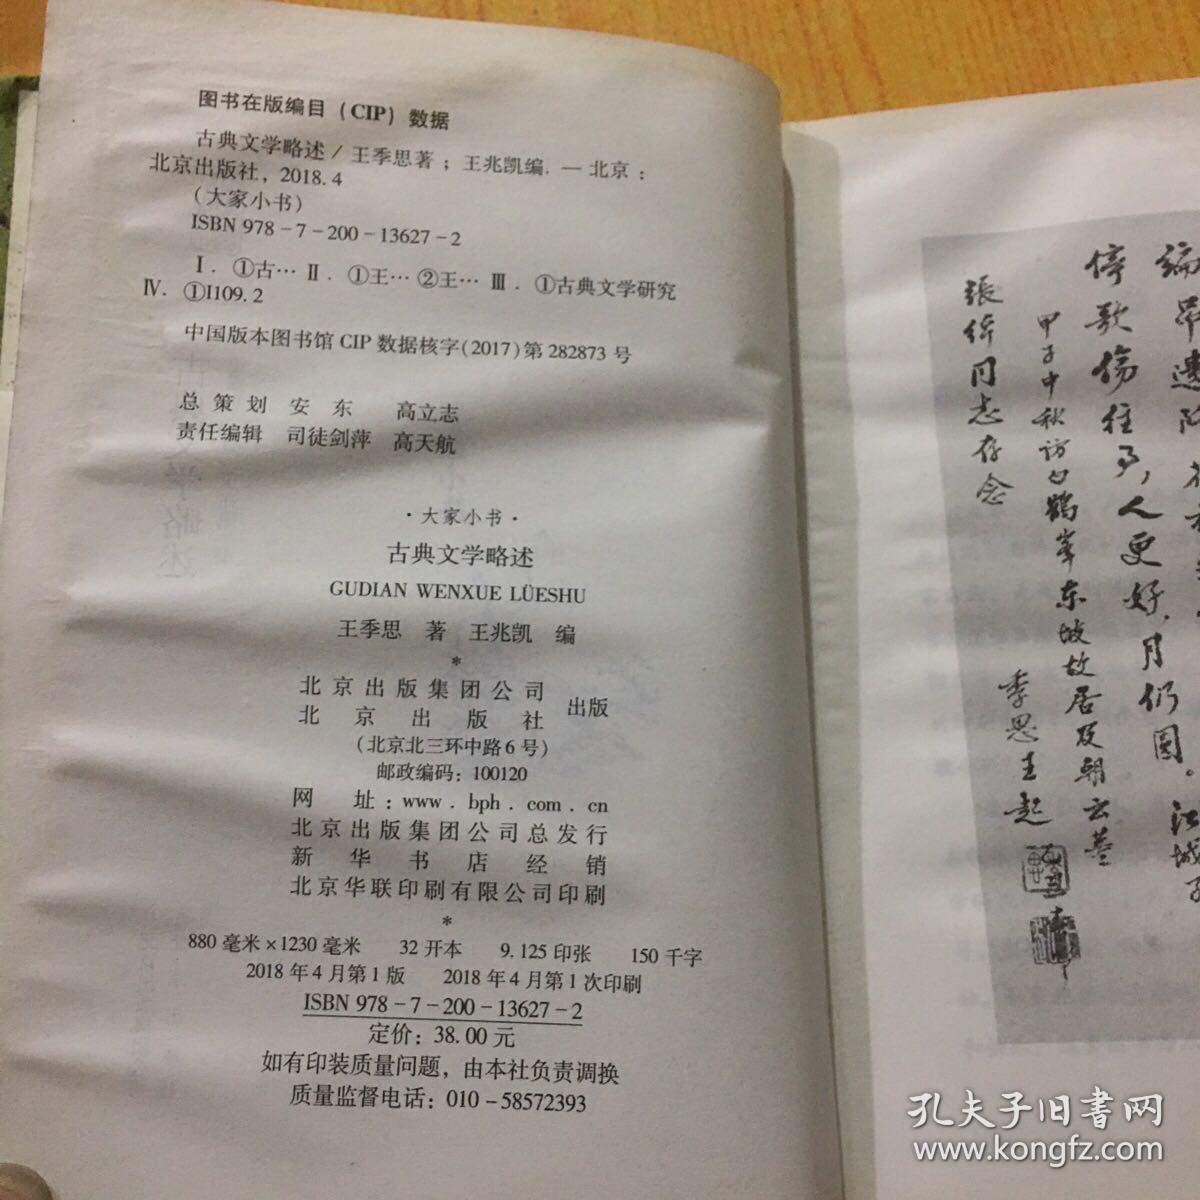 图书在版编目（CIP）数据
古典文学略述/王季思著；王兆凯编. — 北京：
北京出版社，2018.4
（大家小书）
ISBN 978-7-200-13627-2
Ⅰ. ①古… Ⅱ. ①王… ②王… Ⅲ. ①古典文学研究
Ⅳ. ①I109.2
中国版本图书馆 CIP 数据核字(2017)第 282873 号
总策划 安东 高立志
责任编辑 司徒剑萍 高天航
·大家小书·
古典文学略述
GUDIAN WENXUE LÜESHU
王季思 著 王兆凯 编
*
北京出版集团公司
北京出版社 出版
（北京北三环中路6号）
邮政编码：100120
网 址：www.bph.com.cn
北京出版集团公司总发行
新华书店经销
北京华联印刷有限公司印刷
*
880 毫米×1230 毫米 32 开本 9.125 印张 150 千字
2018 年 4 月第 1 版 2018 年 4 月第 1 次印刷
ISBN 978-7-200-13627-2
定价：38.00 元
如有印装质量问题，由本社负责调换
质量监督电话：010-58572393
江城子
停歌伤往事，人更好，月仍圆。
甲子中秋访白鹤峰东坡故居及朝云墓
张绰同志存念
季思王起
孔夫子旧书网
www.kongfz.com